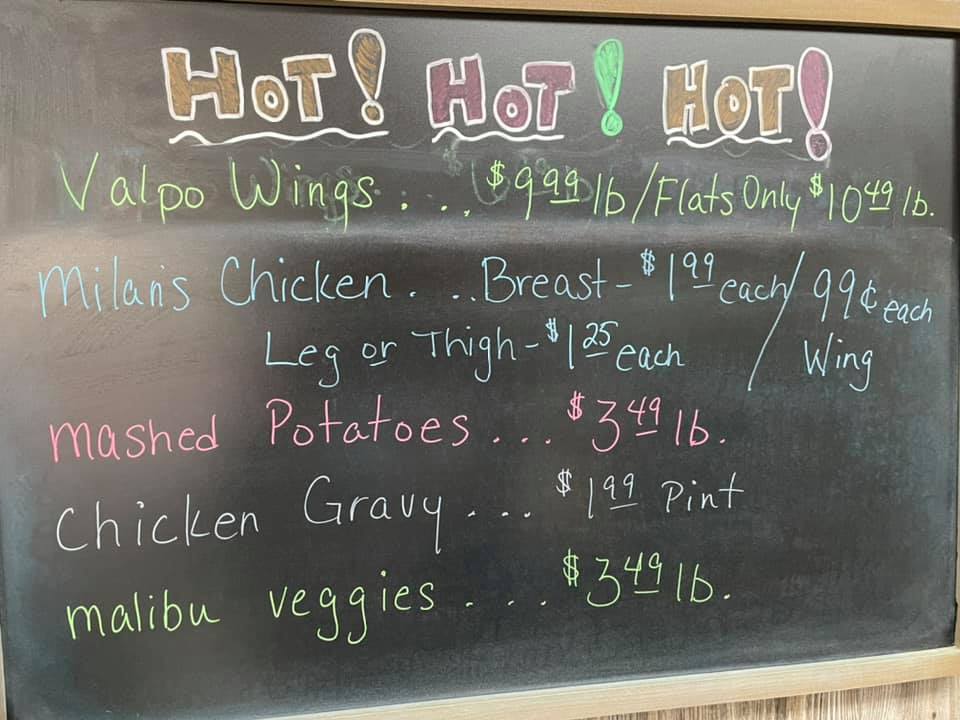 HOT! HOT! HOT!
Valpo Wings . . . $9.99 lb/Flats Only $10.49 lb.
Milan's Chicken . . . Breast - $1.99 each/ 99¢ each
Leg or Thigh - $1.25 each / Wing
Mashed Potatoes . . . $3.49 lb.
Chicken Gravy . . . $1.99 Pint
malibu veggies . . . $3.49 lb.